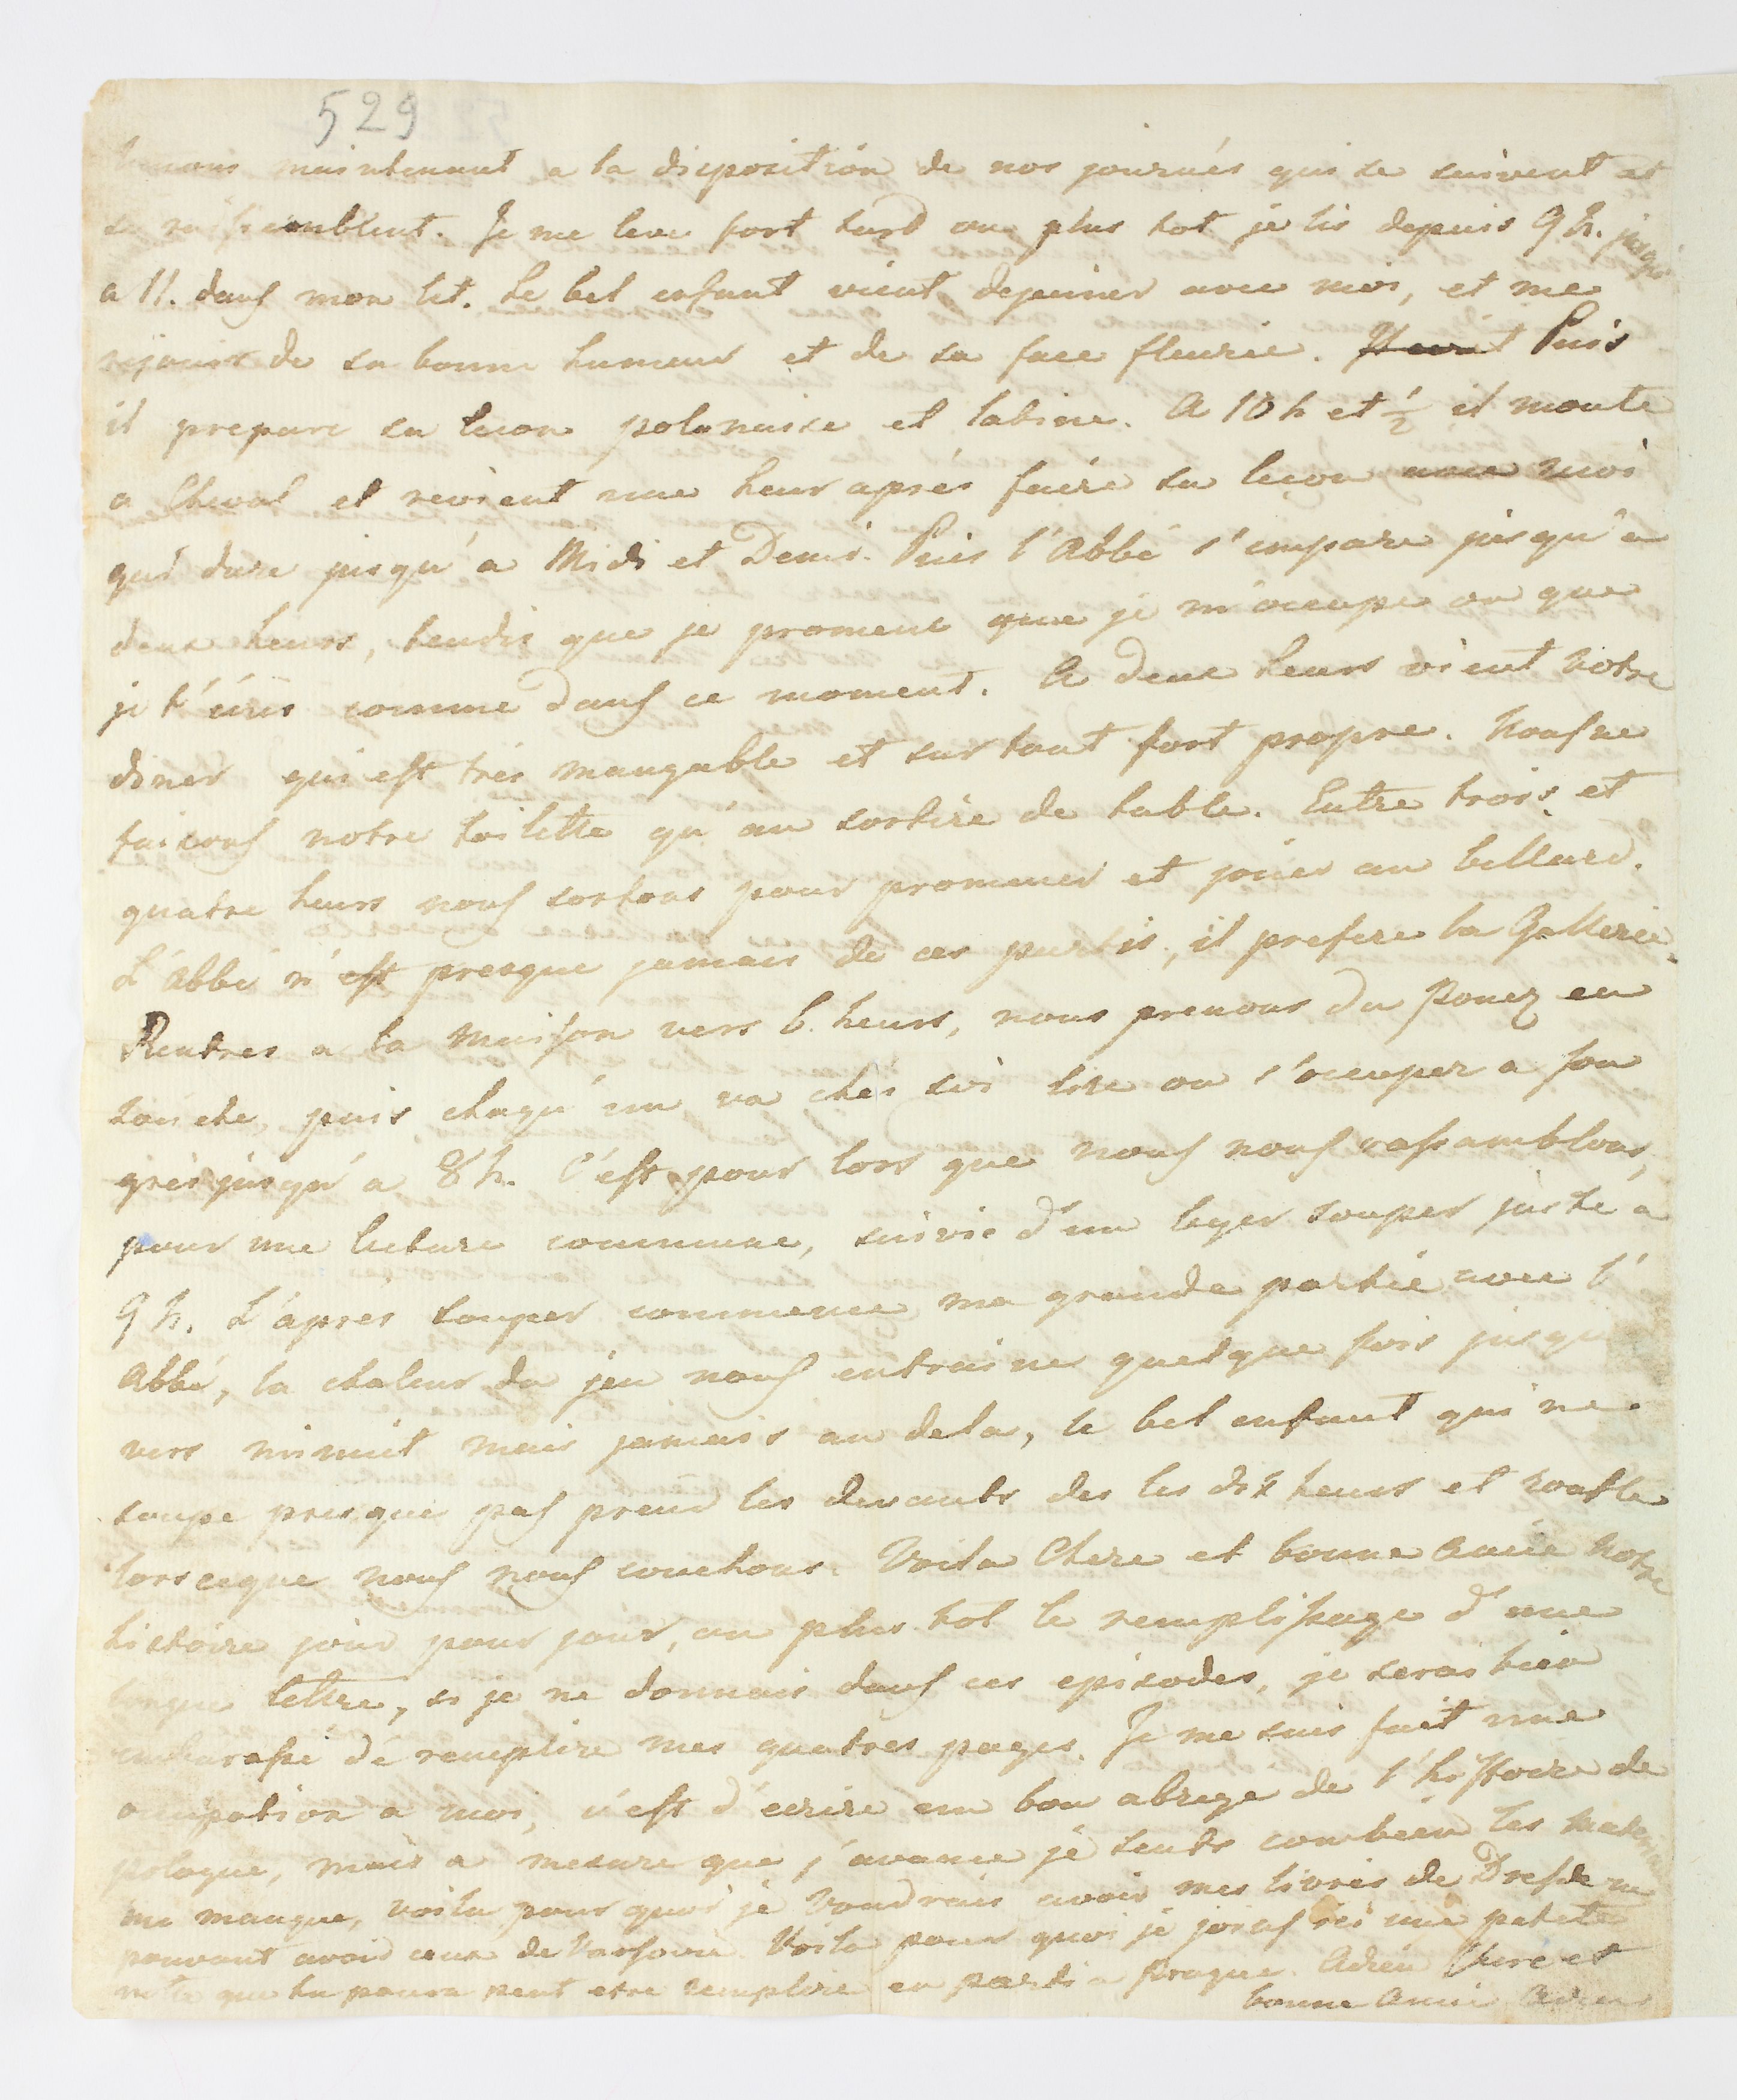 529
maintenant a la disposition de nos journés qui se suivent et
se ressemblent. Je me leve fort tard ou plus tot je lis depuis 9 h. jusqu'
a 11. dans mon lit. Le bel enfant vient dejeuner avec moi, et me
rejouis de sa bonne humeur et de sa face fleurie. Puis
il prepare sa lecon polonaise et latine. A 10 h et ½ il monte
a Cheval et revient une heur aprés faire sa leçon avec moi
qui dure jusqu'a Midi et Demi. Puis l'Abbé s'empare jusqu'a
deux heurs, tendis que je promene que je m'occupe ou que
je t'écris comme dans ce moment. A deux heurs vient notre
diner qui est trés mangable et sur tout fort propre. Nous ne
faisons notre toilette qu'au sortire de table. Entre trois et
quatre heurs nous sortons pour prommer et jouer au billard.
L'abbé n'est presque jamais de ces partis, il prefere la Gallerie.
Rentres a la maison vers 6. heurs, nous prenons du Poncz en
touche, puis chaqu'un va ches soi lire ou s'occuper a son
grés jusqu'a 8 h. C'est pour lors que nous nous rassamblons,
pour une lecture commune, suivie d'un leger souper juste a
9 h. L'aprés souper commence ma grande partie avec l'
Abbé, la chaleur du jeu nous entraine quelque fois jusqu
vers minuit mais jamais au dela, le bel enfant qui ne
soupe presque pas prend les devants des les dix heurs et ronfle
lorscque nous nous couchons. Voila Chere et bonne Amie notre
histoire jour pour jour, ou plus tot le remplissage d'une
longue lettre, si je ne donnais dans ces episodes, je serais bien
embarassé de remplire mes quatres pages. Je me suis fait une
occupation a moi, c'est d'ecrire un bon abregé de l'histoire de
pologne, mais a mesure que j'avance je sents combien les
me manque, voila pour quoi je voudrais avoir mes livres de Dresde ne
pouvant avoir ceux de Varsovie. Voila pour quoi je joins ici une petite
note que tu poura peut etre remplire en parti a Prague. Adieu Chere et
bonne Amie Adieu